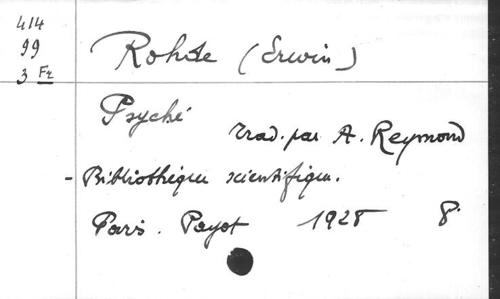 414
99
3 Fr
Rohde (Erwin)
Psyché
trad. par A. Reymond
- Bibliothèque scientifique.
Paris. Payot 1928 8°